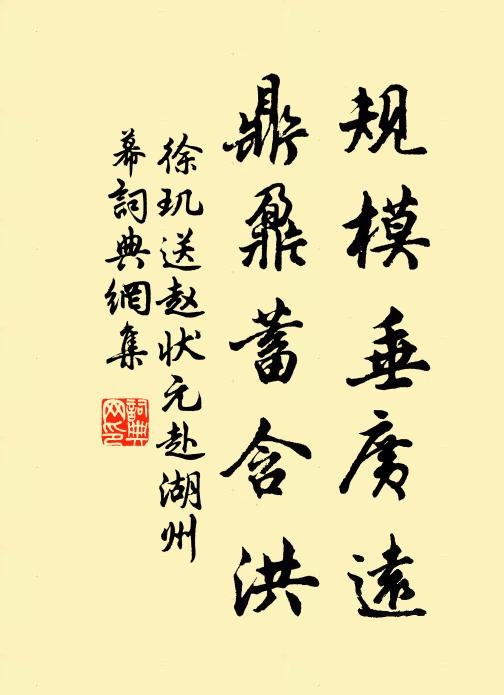 規模垂廣遠
鼎鼐蓄含洪
徐玑送赵状元赴湖州
幕詞典網集
詞典
网印